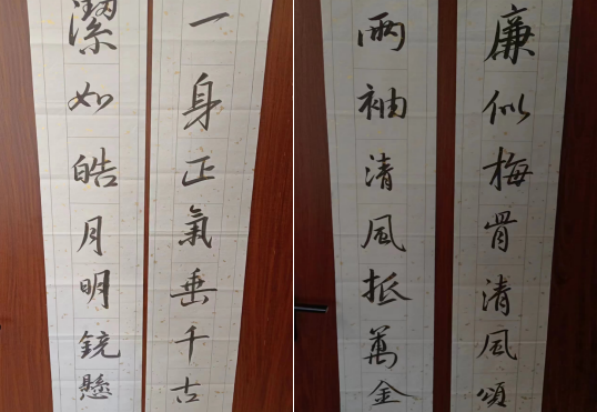 一身正氣垂千古
潔如皓月明鏡懸
廉似梅骨清風頌
兩袖清風抵萬金